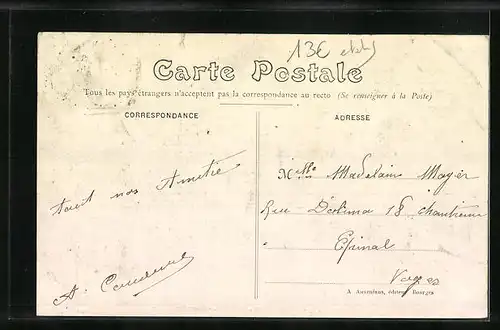 13€
Carte Postale
Tous les pays étrangers n'acceptent pas la correspondance au recto (Se renseigner à la Poste)
CORRESPONDANCE
ADRESSE
tout nos Amitié
Mlle Madelain Mayer
Rue 18
Epinal
Vosges
A. Auxenfans, éditeur, Bourges